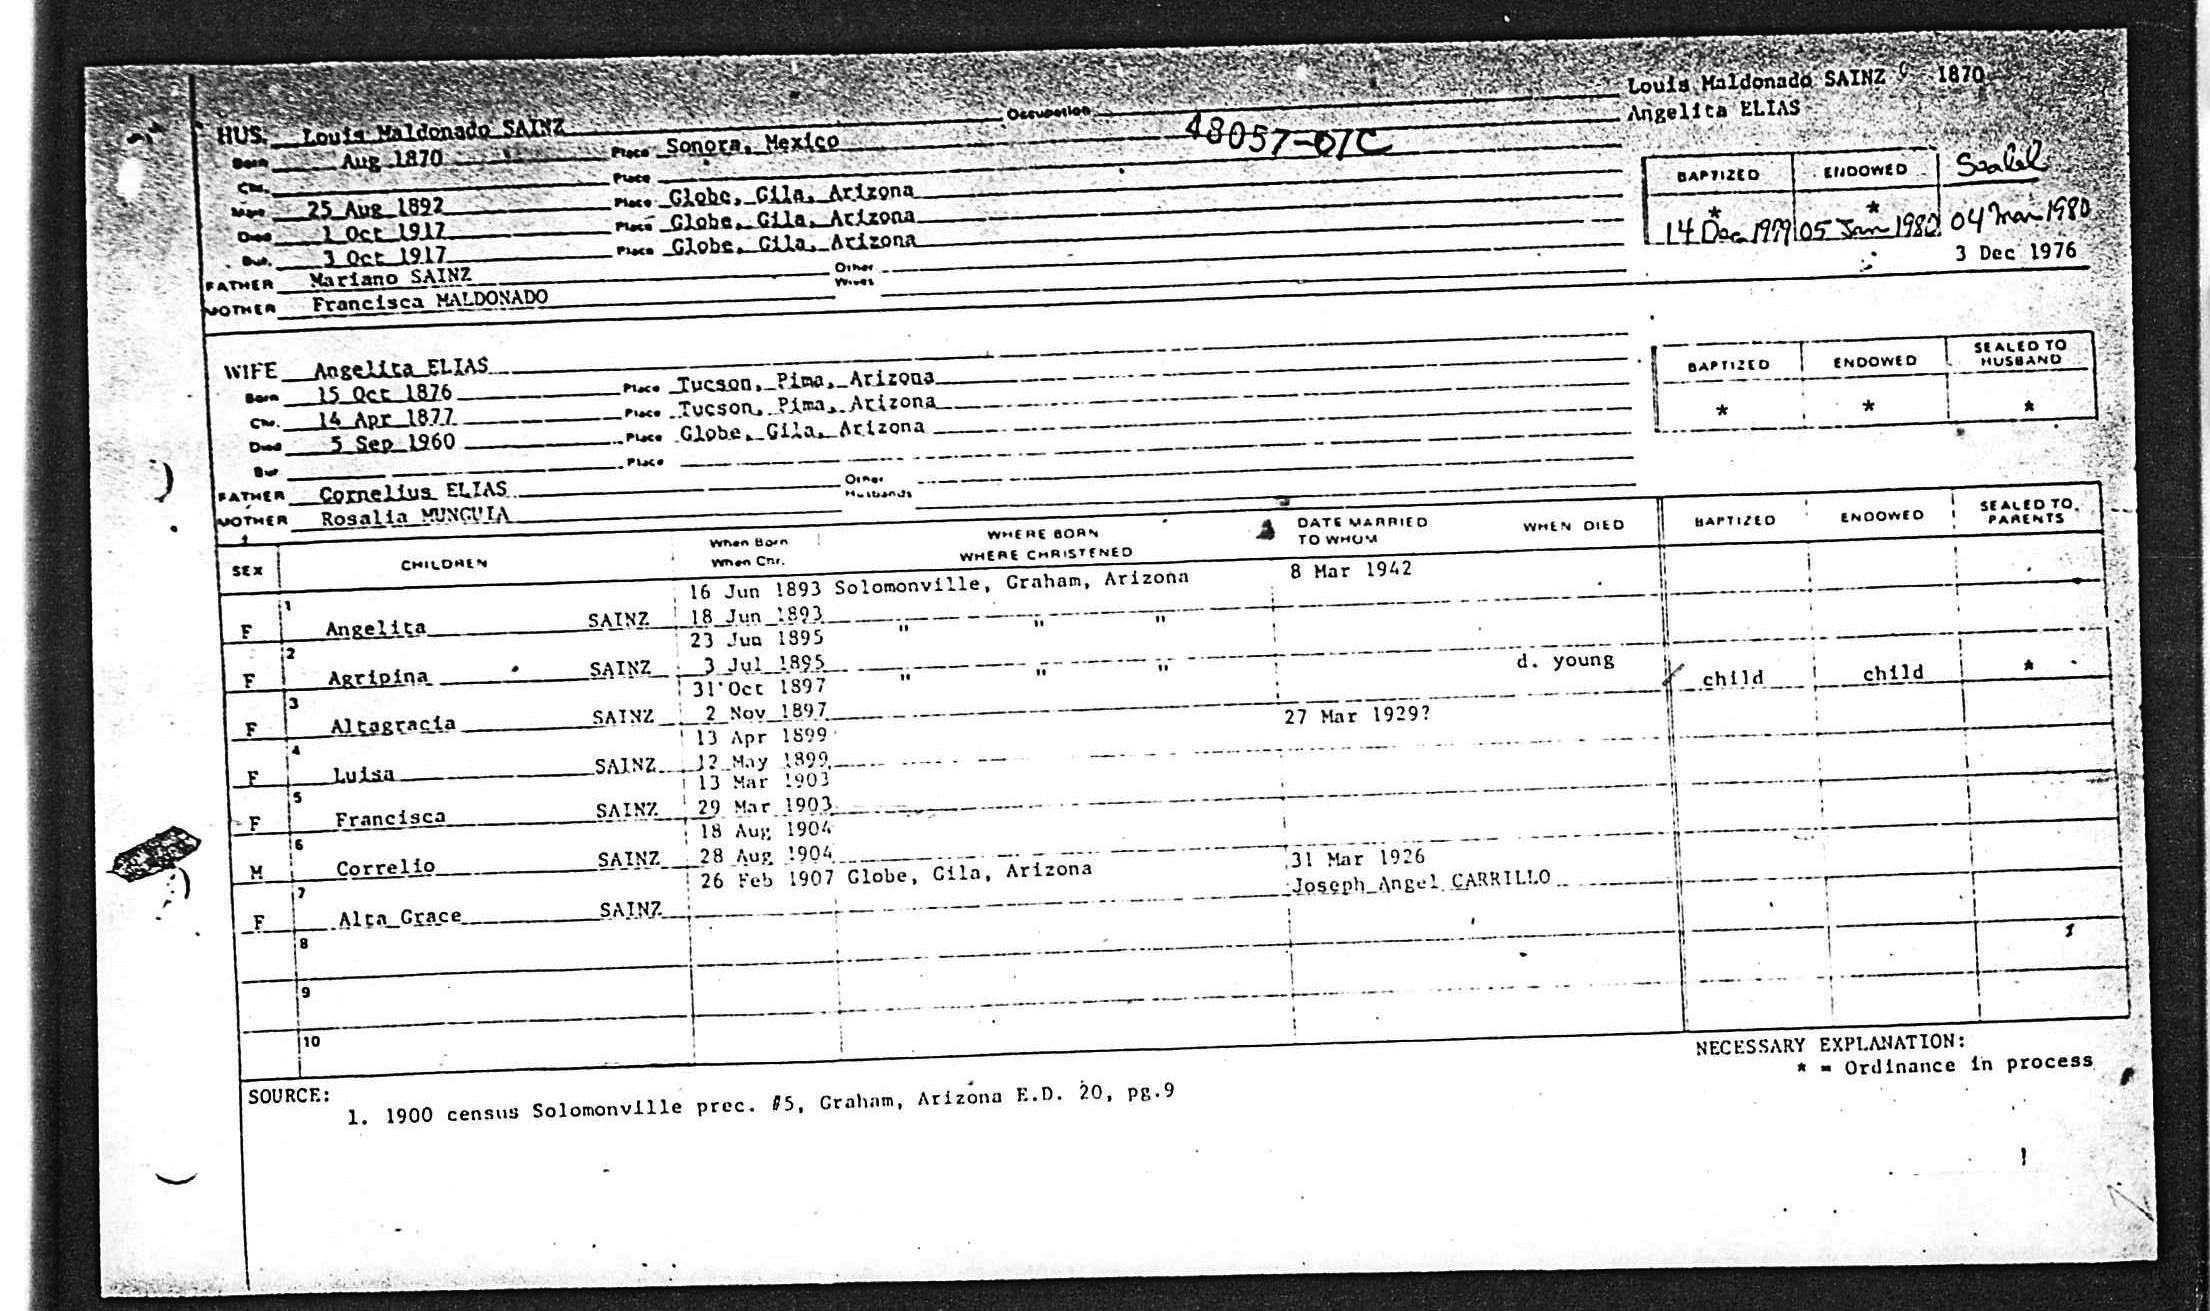 Louis Maldonado SAINZ 1870
Angelita ELIAS
HUS. Louis Maldonado SAINZ Occupation
Born Aug 1870 Place Sonora, Mexico 48057-01C
Chr. Place
Marr. 25 Aug 1892 Place Globe, Gila, Arizona
Died 1 Oct 1917 Place Globe, Gila, Arizona
Bur. 3 Oct 1917 Place Globe, Gila, Arizona
FATHER Mariano SAINZ Other Wives
MOTHER Francisca MALDONADO
BAPTIZED ENDOWED Sealed
* *
14 Dec 1979 05 Jan 1980 04 Mar 1980
3 Dec 1976
WIFE Angelita ELIAS
Born 15 Oct 1876 Place Tucson, Pima, Arizona
Chr. 14 Apr 1877 Place Tucson, Pima, Arizona
Died 5 Sep 1960 Place Globe, Gila, Arizona
Bur Place
FATHER Cornelius ELIAS Other Husbands
MOTHER Rosalia MUNGUIA
BAPTIZED ENDOWED SEALED TO HUSBAND
* * *
SEX CHILDREN When Born When Chr. WHERE BORN WHERE CHRISTENED DATE MARRIED TO WHOM WHEN DIED BAPTIZED ENDOWED SEALED TO PARENTS
16 Jun 1893 Solomonville, Graham, Arizona 8 Mar 1942
F 1 Angelita SAINZ 18 Jun 1893 " " "
23 Jun 1895
F 2 Agripina SAINZ 3 Jul 1895 " " " d. young child child *
31 Oct 1897
F 3 Altagracia SAINZ 2 Nov 1897
13 Apr 1899 27 Mar 1929?
F 4 Luisa SAINZ 12 May 1899
13 Mar 1903
F 5 Francisca SAINZ 29 Mar 1903
18 Aug 1904
M 6 Correlio SAINZ 28 Aug 1904
26 Feb 1907 Globe, Gila, Arizona 31 Mar 1926
F 7 Alta Grace SAINZ Joseph Angel CARRILLO
8
9
10
NECESSARY EXPLANATION:
* = Ordinance in process
SOURCE:
1. 1900 census Solomonville prec. #5, Graham, Arizona E.D. 20, pg.9